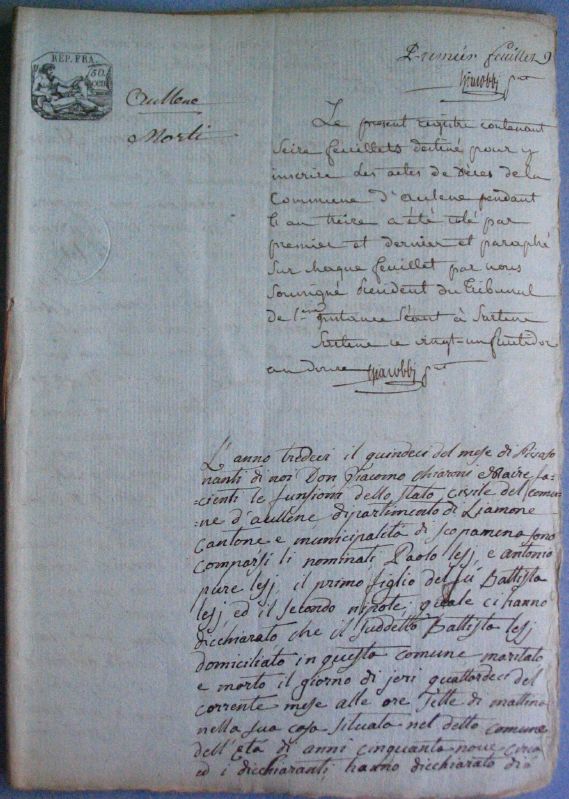 REP. FRA.
50
CEN
Premier feuillet
Giacobbi
Aullene
Morti
Le present registre contenant
Seize feuillets destiné pour y
inscrire des actes de Décés de la
Commune d'aulene pendant
l'an treize a été coté par
premier et dernier et paraphé
sur chaque feuillet par nous
soussigné president du tribunal
de 1ere instance séant à Sartene
Sartene ce vingt-un fructidor
an douze Giacobbi
L'anno tredeci il quindeci del mese di
nanti di noi Don Giacomo Chiaroni Maire fa-
-cienti le funsioni dello stato civile del comu-
-ne d'aullene dipartimento di Liamone
cantone e municipalità di scopamena sono
comparsi li nominati Paolo lesj e antonio
pure lesj, il primo figlio del fù Battista
lesj ed il secondo nipote, quale ci hanno
dicchiarato che il suddetto Battista lesj
domiciliato in questa comune maritato
e morto il giorno di jeri quattordeci del
corrente mese alle ore sette di mattina
nella sua casa situata nel detto comune
dell'età di anni cinquanta nove circa
ed i dicchiaranti hanno dicchiarato di